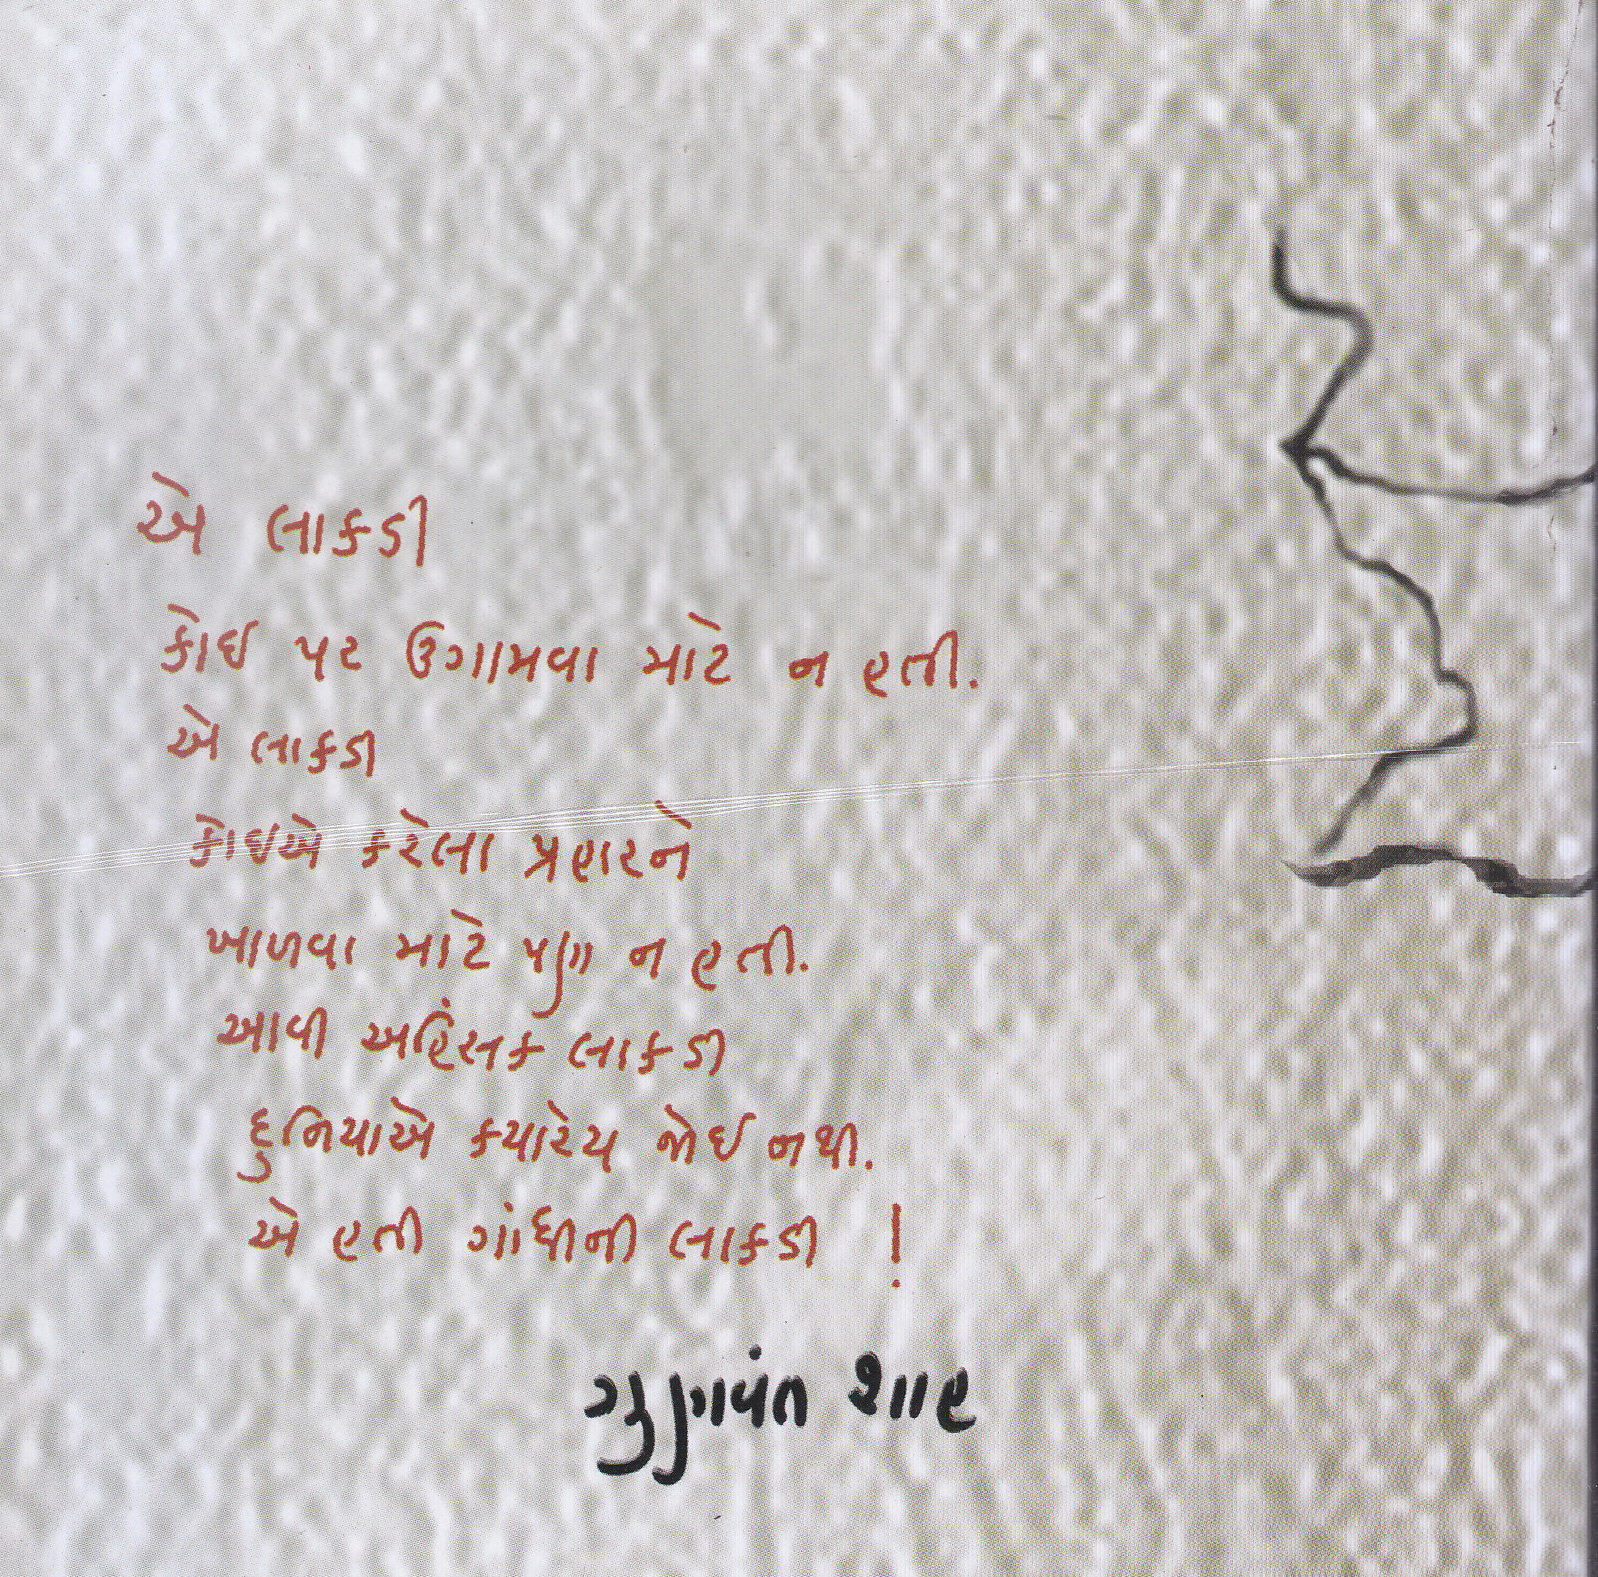 એ લાકડી
કોઈ પર ઉગામવા માટે ન હતી.
એ લાકડી
કોઈએ કરેલા પ્રહારને
ખાળવા માટે પણ ન હતી.
આવી અહિંસક લાકડી
દુનિયાએ ક્યારેય જોઈ નથી.
એ હતી ગાંધીની લાકડી !
ગુણવંત શાહ